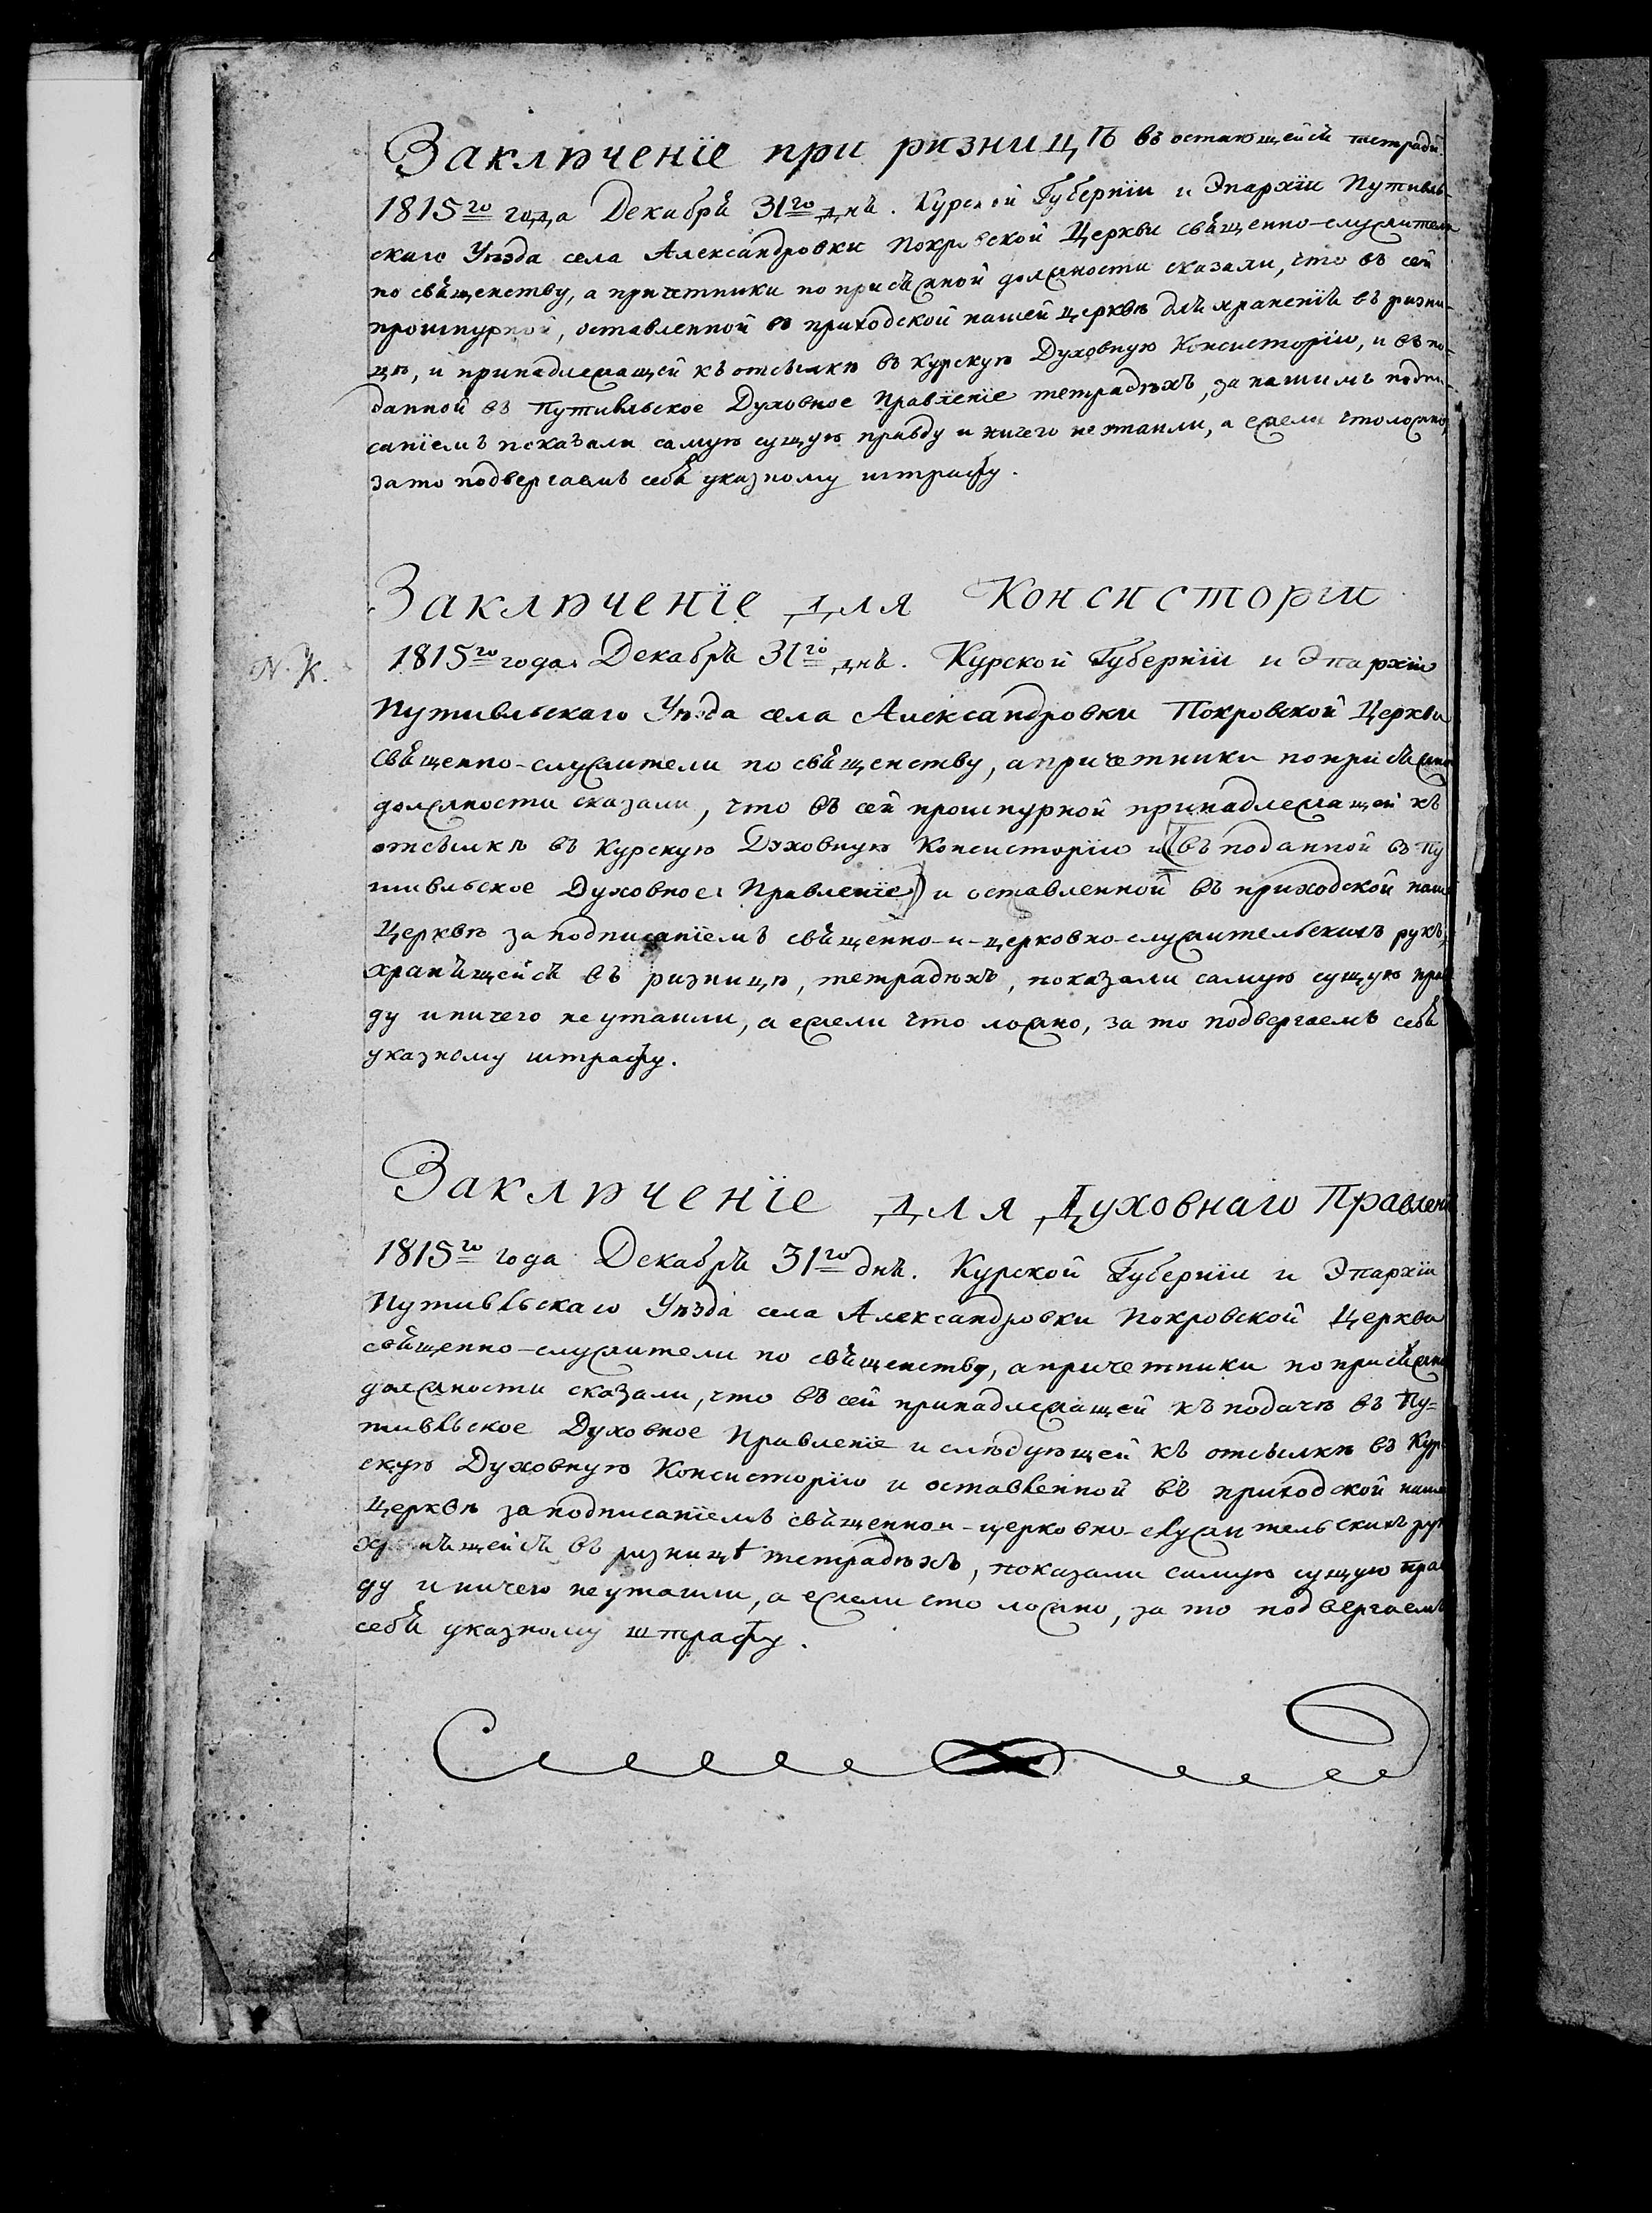 Заключенїе при ризницѣ въ остающейся тетради.
1815го года Декабря 31го дня. Курской Губернїи и Эпархїи Путивль-
скаго Уѣзда села Александровки Покровской Церкви священно-служители
по священству, а причетники по присяжной должности сказали, что въ сей
прошнурной, оставленной въ приходской нашей церквѣ для храненїя въ ризни-
цѣ, и принадлежащей къ отсылкѣ въ Курскую Духовную Консисторїю, и въ по-
данной въ Путивльское Духовное Правленїе тетрадѣхъ, за нашимъ подпи-
санїемъ показали самую сущую правду и ничего не утаили, а ежели что ложно,
за то подвергаемъ себя указному штрафу.
Заключенїе для Консисторїи
N. К.
1815го года Декабря 31го дня. Курской Губернїи и Эпархїи
Путивльскаго Уѣзда села Александровки Покровской Церкви
священно-служители по священству, а причетники по присяжно
должности сказали, что въ сей прошнурной принадлежащей къ
отсылкѣ въ Курскую Духовную Консисторїю и (въ поданной въ Пу
тивльское Духовное Правленїе) и оставленной въ приходской наше
Церквѣ за подписанїемъ священно-и-церковно-служительскихъ рукъ,
хранящейся въ ризницѣ, тетрадѣхъ, показали самую сущую прав
ду и ничего не утаили, а ежели что ложно, за то подвергаемъ себя
указному штрафу.
Заключенїе для Духовнаго Правлен
1815го года Декабря 31го дня. Курской Губернїи и Эпархїи
Путивльскаго Уѣзда села Александровки Покровской Церкви
священно-служители по священству, а причетники по присяжно
должности сказали, что въ сей принадлежащей къ подачѣ въ Пу=
тивльское Духовное Правленїе и слѣдующей къ отсылкѣ въ Кур
скую Духовную Консисторїю и оставленной въ приходской наше
Церквѣ за подписанїемъ священнои-церковно-служительскихъ рук
хранящейся въ ризницѣ тетрадѣхъ, показали самую сущую прав
ду и ничего не утаили, а ежели что ложно, за то подвергаемъ
себя указному штрафу.